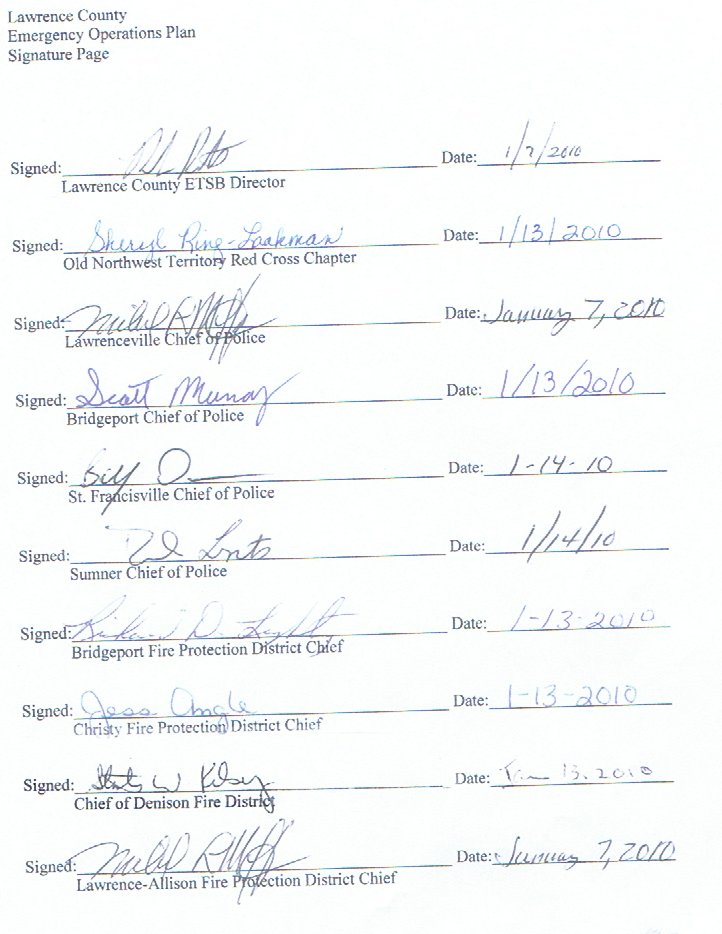 Lawrence County
Emergency Operations Plan
Signature Page
Signed: Date: 1/7/2010
Lawrence County ETSB Director
Signed: Sheryl Ring-Laakman Date: 1/13/2010
Old Northwest Territory Red Cross Chapter
Signed: Date: January 7, 2010
Lawrenceville Chief of Police
Signed: Scott Murray Date: 1/13/2010
Bridgeport Chief of Police
Signed: Bill Date: 1-14-10
St. Francisville Chief of Police
Signed: Date: 1/14/10
Sumner Chief of Police
Signed: Richard D. Date: 1-13-2010
Bridgeport Fire Protection District Chief
Signed: Jess Angle Date: 1-13-2010
Christy Fire Protection District Chief
Signed: W Date: Jan 13, 2010
Chief of Denison Fire District
Signed: Date: January 7, 2010
Lawrence-Allison Fire Protection District Chief